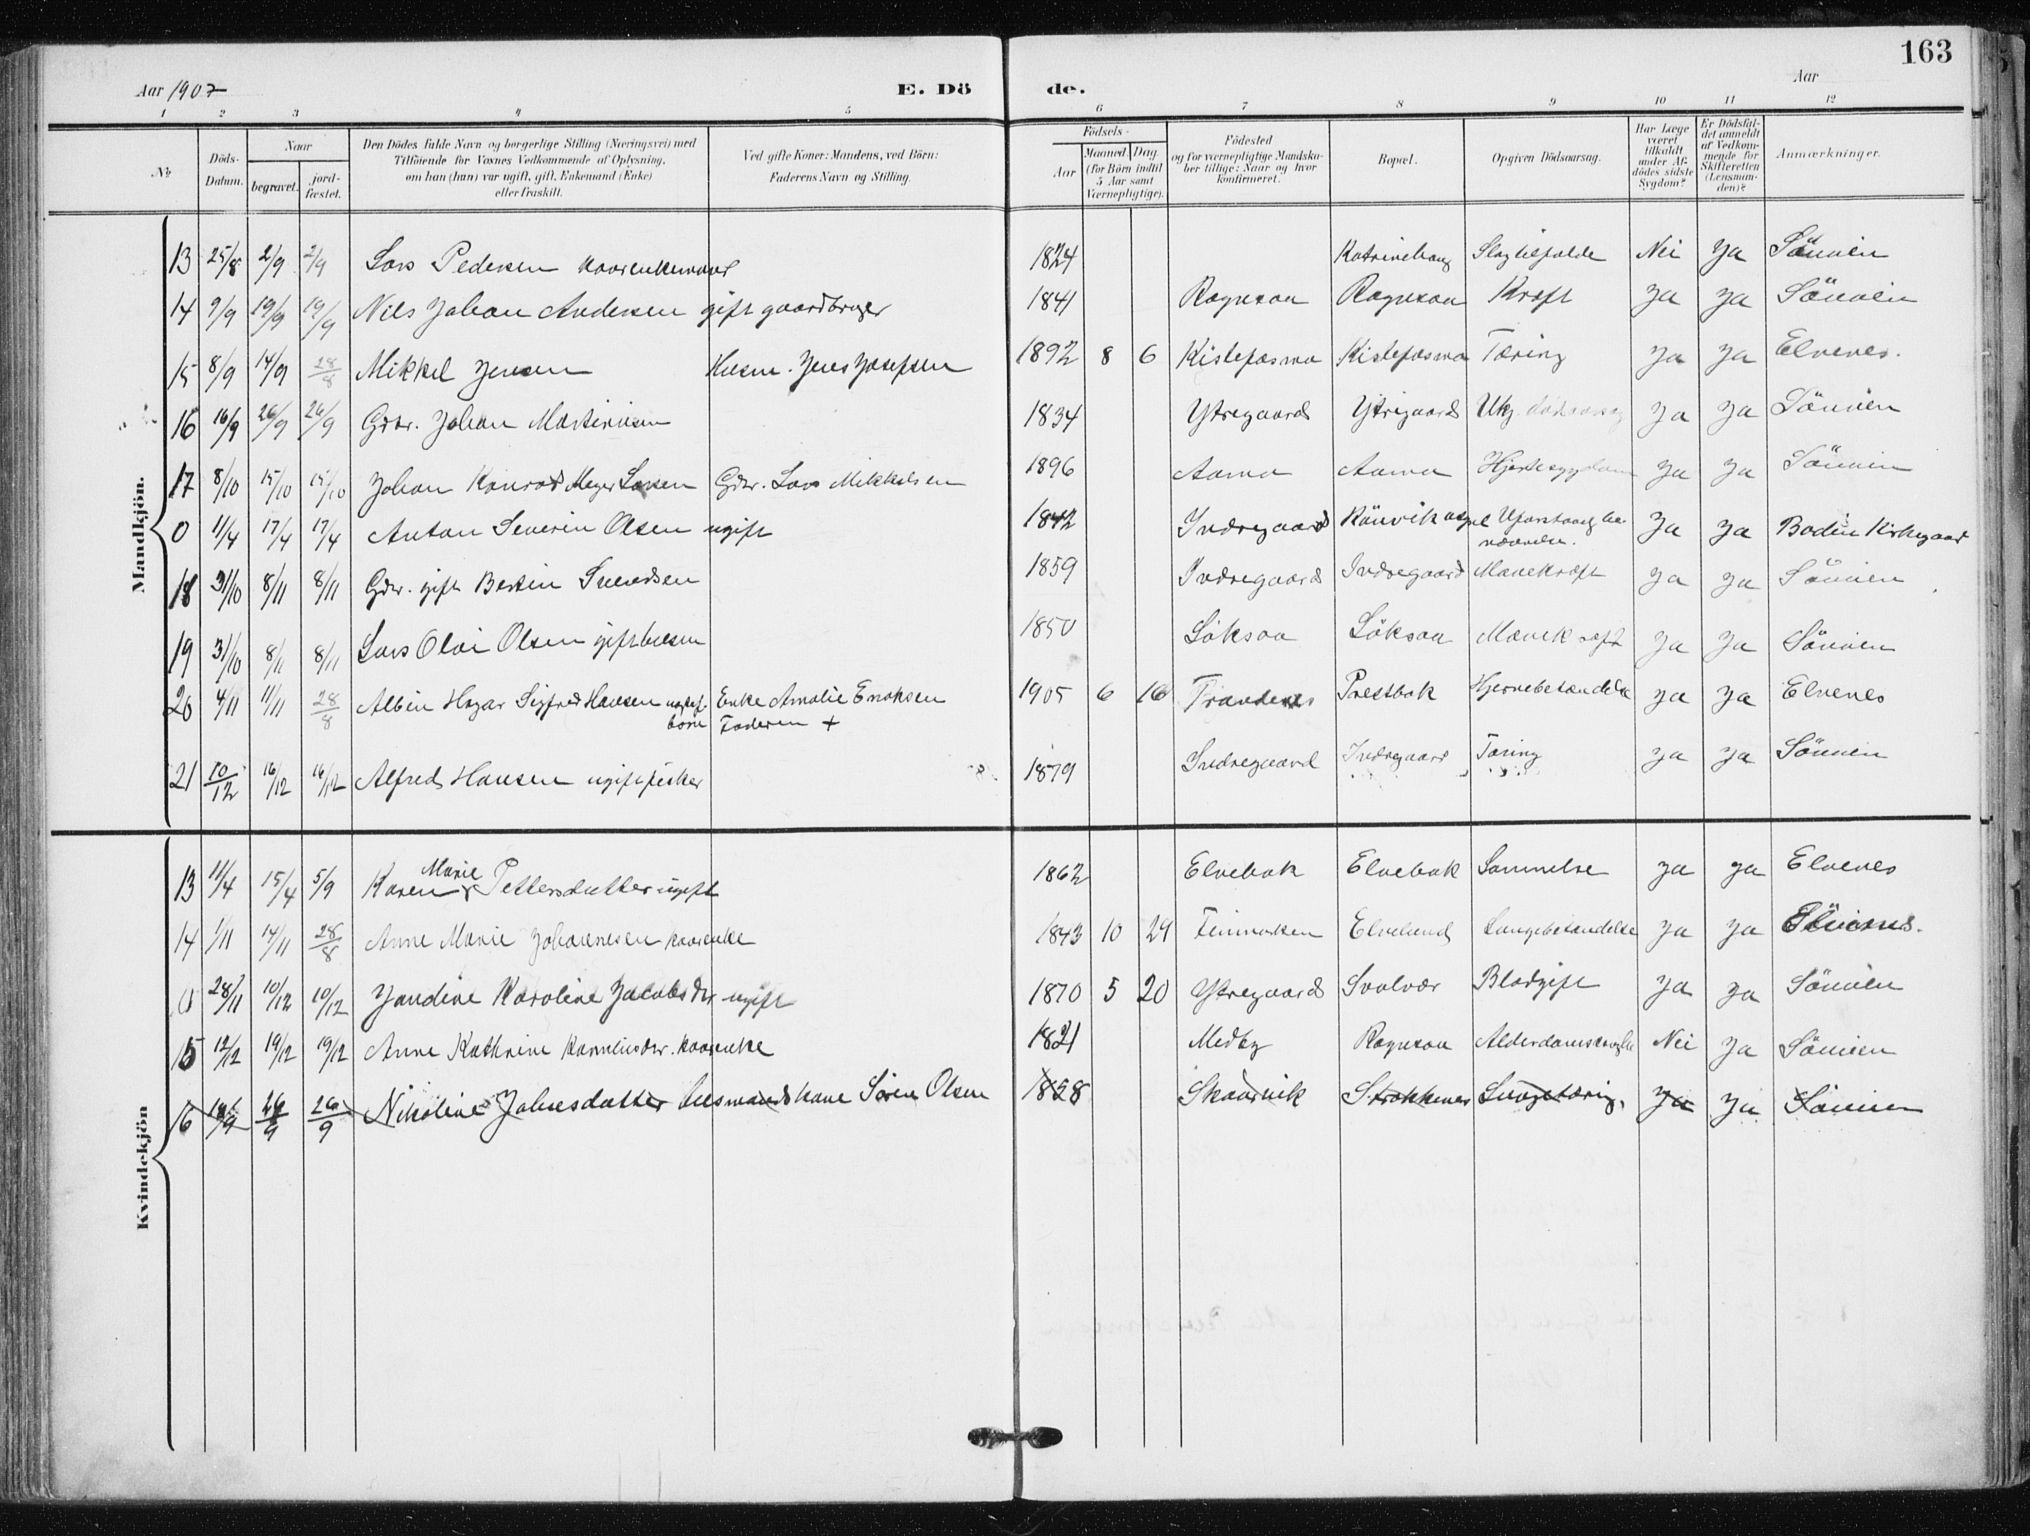 163
Aar 1907 E. Dö de. Aar
1 2 3 4 5 6 7 8 9 10 11 12
№ Döds-Datum. Naar begravet. jord-fæstet. Den Dödes fulde Navn og borgerlige Stilling (Næringsvei) med Tilföiende for Voxnes Vedkommende af Oplysning, om han (hun) var ugift, gift, Enkemand (Enke) eller fraskilt. Ved gifte Koner: Mandens, ved Börn: Faderens Navn og Stilling. Födsels- Aar Maaned. Dag. (for Börn indtil 5 Aar samt Værnepligtige). Födested og for værnepligtige Mandskaber tillige: Naar og hvor konfirmeret. Bopæl. Opgiven Dödsaarsag. Har Læge været tilkaldt under Afdödes sidste Sygdom? Er Dödsfaldet anmeldt af Vedkommende for Skifteretten (Lensmanden)? Anmærkninger.
Mandkjön.
13 25/8 2/9 2/9 Lars Pedersen kaarenkemand 1824 Katrinehaug Slagtilfælde Nei Ja Sönvien
14 9/9 19/9 19/9 Nils Johan Andersen gift gaardbruger 1841 Rognsaa Rognsaa Kræft Ja Ja Sönvien
15 8/9 14/9 28/8 Mikkel Jensen Husm. Jens Josefsen 1892 8 6 Kistefosmo Kistefosmo Tæring Ja Ja Elvenes.
16 16/9 26/9 26/9 Gdbr. Johan Martinusen 1834 Ytregaard Ytregaard Ukj. dödsaarsag Ja Ja Sönvien
17 8/10 15/10 15/10 Johan Konrad Meyer Larsen Gdbr. Lars Mikkelsen 1896 Aamo Aamo Hjertesygdom Ja Ja Sönvien
0 11/4 17/4 17/4 Anton Severin Olsen ugift 1842 Indregaard Rönvik asyl Ja Ja Bodin Kirkegaard
18 31/10 8/11 8/11 Gdbr. gift Bertin Svendsen 1859 Indregaard Indregaard Mavekræft Ja Ja Sönvien
19 31/10 8/11 8/11 Lars Olai Olsen gift husm 1850 Löksaa Löksaa Mavekræft Ja Ja Sönvien
20 4/11 11/11 28/8 Albin Hagar Sigfred Hansen uægtef. barn Enke Amalie Enoksen Faderen + 1905 6 16 Trandenes Prestbak Hjernebetændelse Ja Ja Elvenes
21 10/12 16/12 16/12 Alfred Hansen ugift fisker 1879 Indregaard Indregaard Tæring Ja Ja Sönvien
Kvindekjön
13 11/4 15/4 5/9 Karen Marie Pettersdatter ugift 1862 Elvebak Elvebak Lammelse Ja Ja Elvenes
14 1/11 14/11 28/8 Anne Marie Johannesen kaarenke 1843 10 24 Finmarken Elvelund Lungebetændelse Ja Ja Elvenes.
0 28/11 10/12 10/12 Jandine Karoline Jacobsdtr ugift 1870 5 20 Ytregaard Svolvær Blodgift Ja Ja Sönvien
15 12/12 19/12 19/12 Anne Kathrine Korneliusdtr. kaarenke 1821 Medby Rognsaa Alderdomssvaghe Nei Ja Sönvien
16 26/9 26/9 Nikoline Johnsdatter husmandskone Sören Olsen 1858 Skaarvik Strokkenes Lungetæring. Ja Ja Sönvien